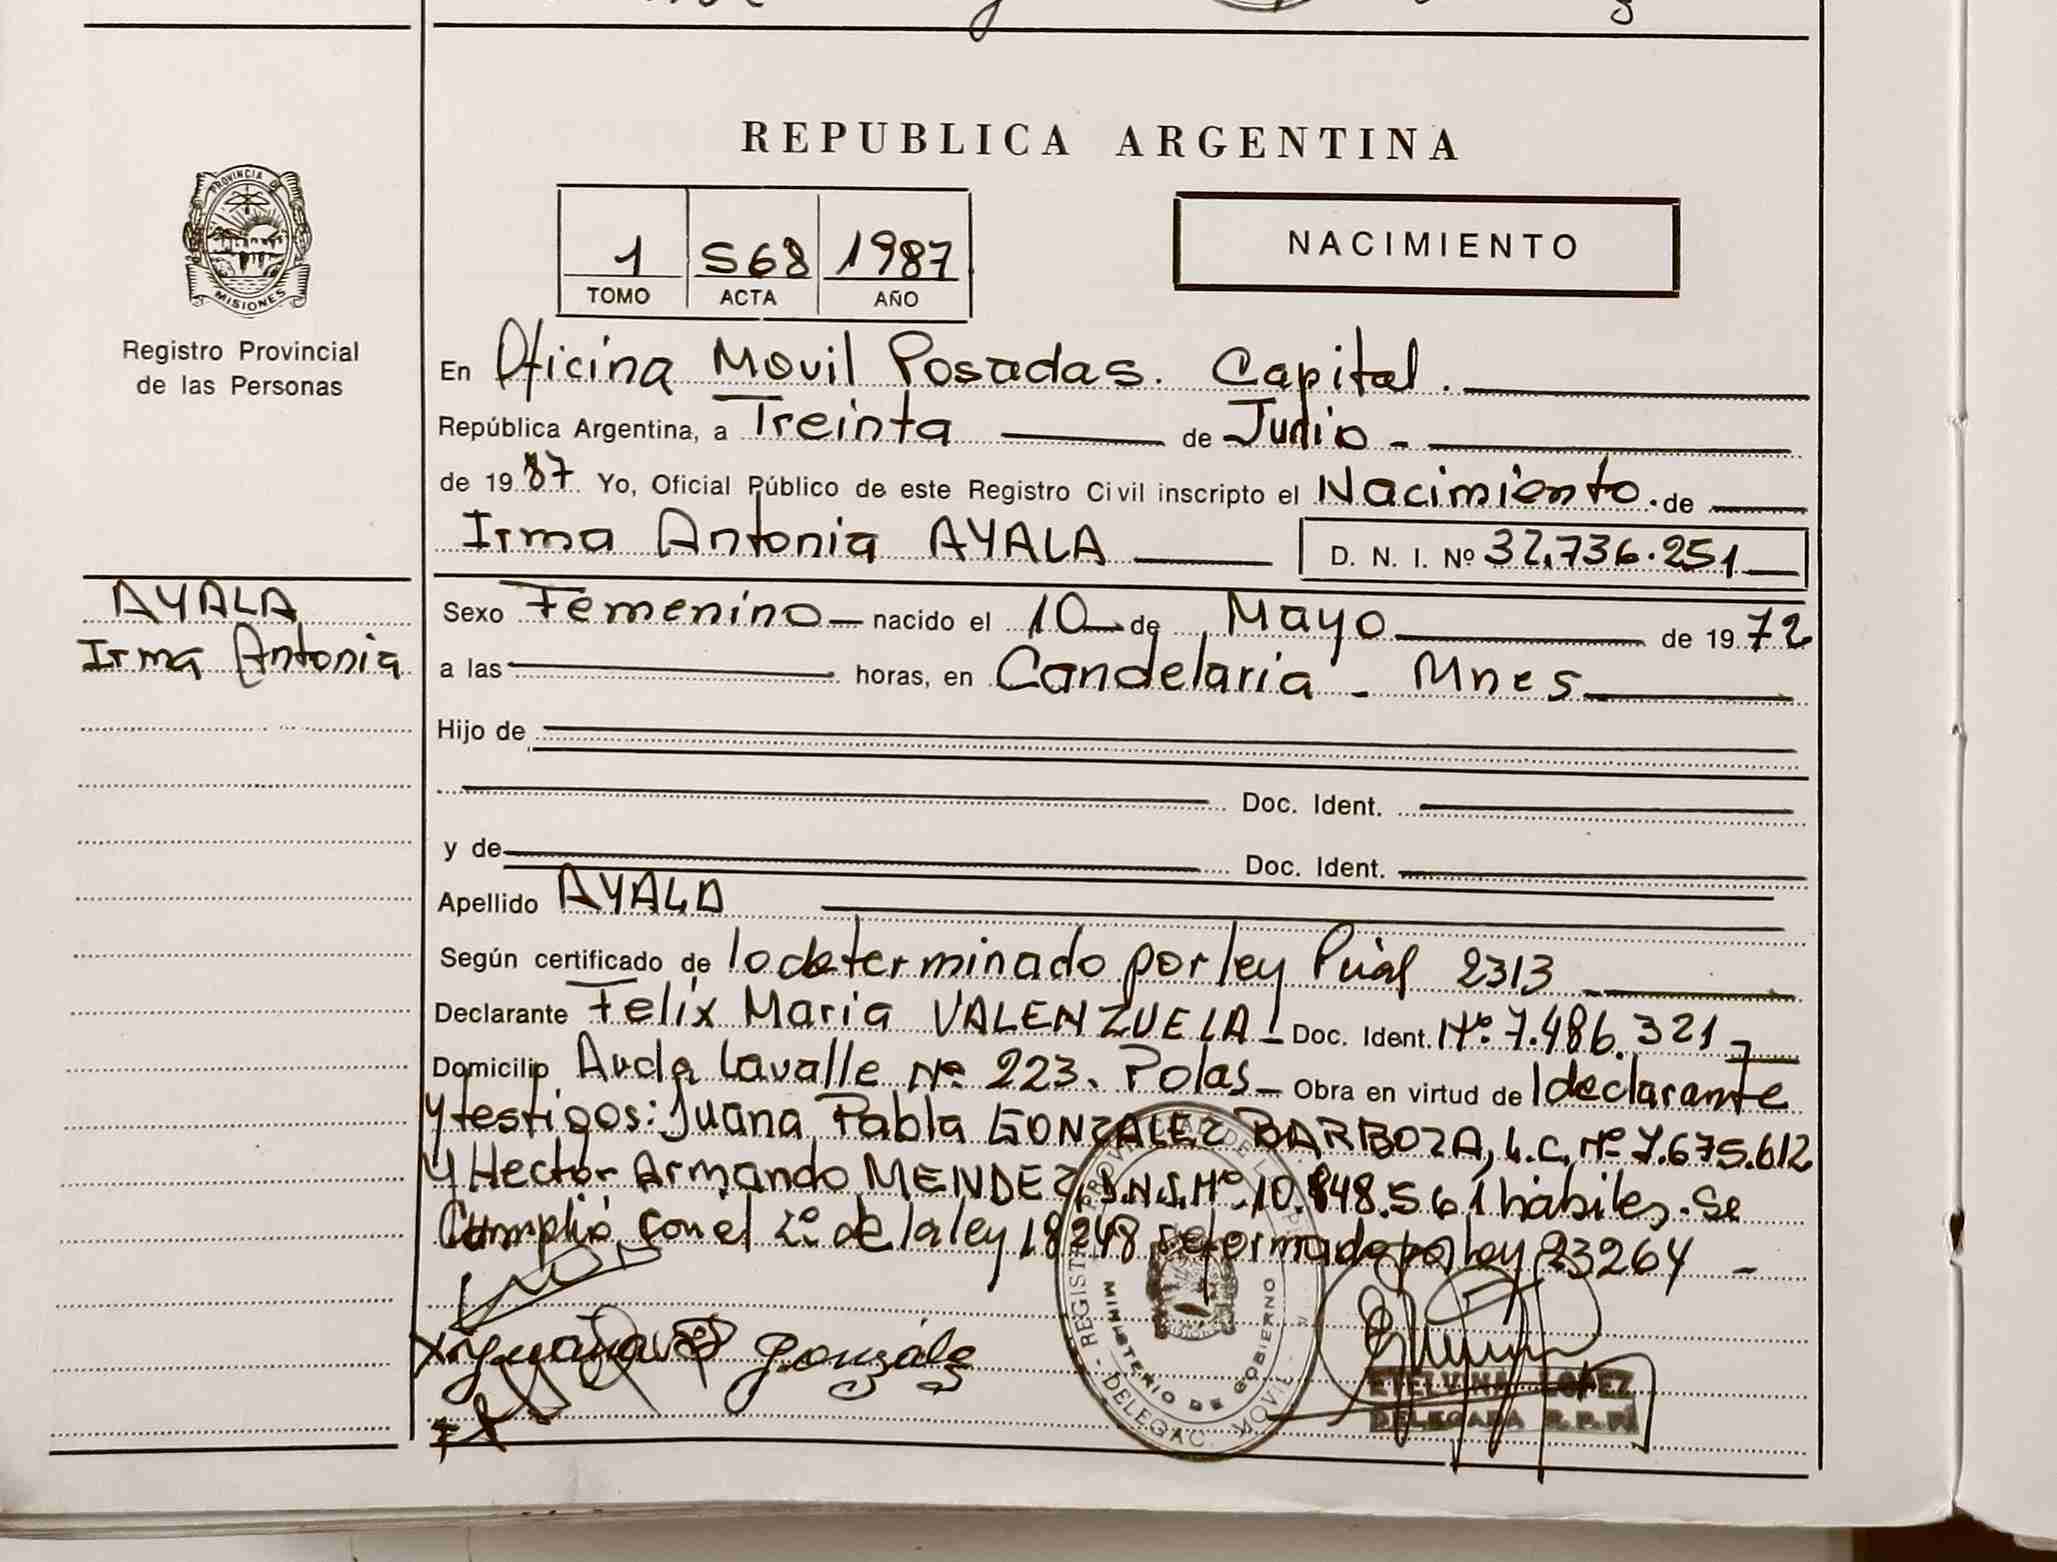 REPUBLICA ARGENTINA
PROVINCIA DE
MISIONES
Registro Provincial
de las Personas
1 568 1987
TOMO ACTA AÑO
NACIMIENTO
En Oficina Movil Posadas. Capital.
República Argentina, a Treinta de Junio -
de 1987. Yo, Oficial Público de este Registro Civil inscripto el Nacimiento. de
Irma Antonia AYALA D. N. I. Nº 32.736.251
AYALA
Irma Antonia
Sexo Femenino nacido el 10 de Mayo de 1972
a las horas, en Candelaria - Mnes
Hijo de
Doc. Ident.
y de Doc. Ident.
Apellido AYALA
Según certificado de lo determinado por ley Pcial 2313
Declarante Felix Maria VALENZUELA Doc. Ident. Nº 7.486.321
Domicilio Avda Lavalle Nº 223. Pdas Obra en virtud de l declarante
y testigos: Juana Pabla GONZALEZ BARBOZA, L.C. Nº 7.675.612
y Hector Armando MENDEZ, D.N.I. Nº 10.848.561 hábiles. Se
Cumplió con el 2º de la ley 18248 reformado por ley 23264 -
gonzáles
REGISTRO PROVINCIAL DE LAS
MINISTERIO DE GOBIERNO
DELEGAC. MOVIL
ETELVINA LOPEZ
DELEGADA R. P. P.